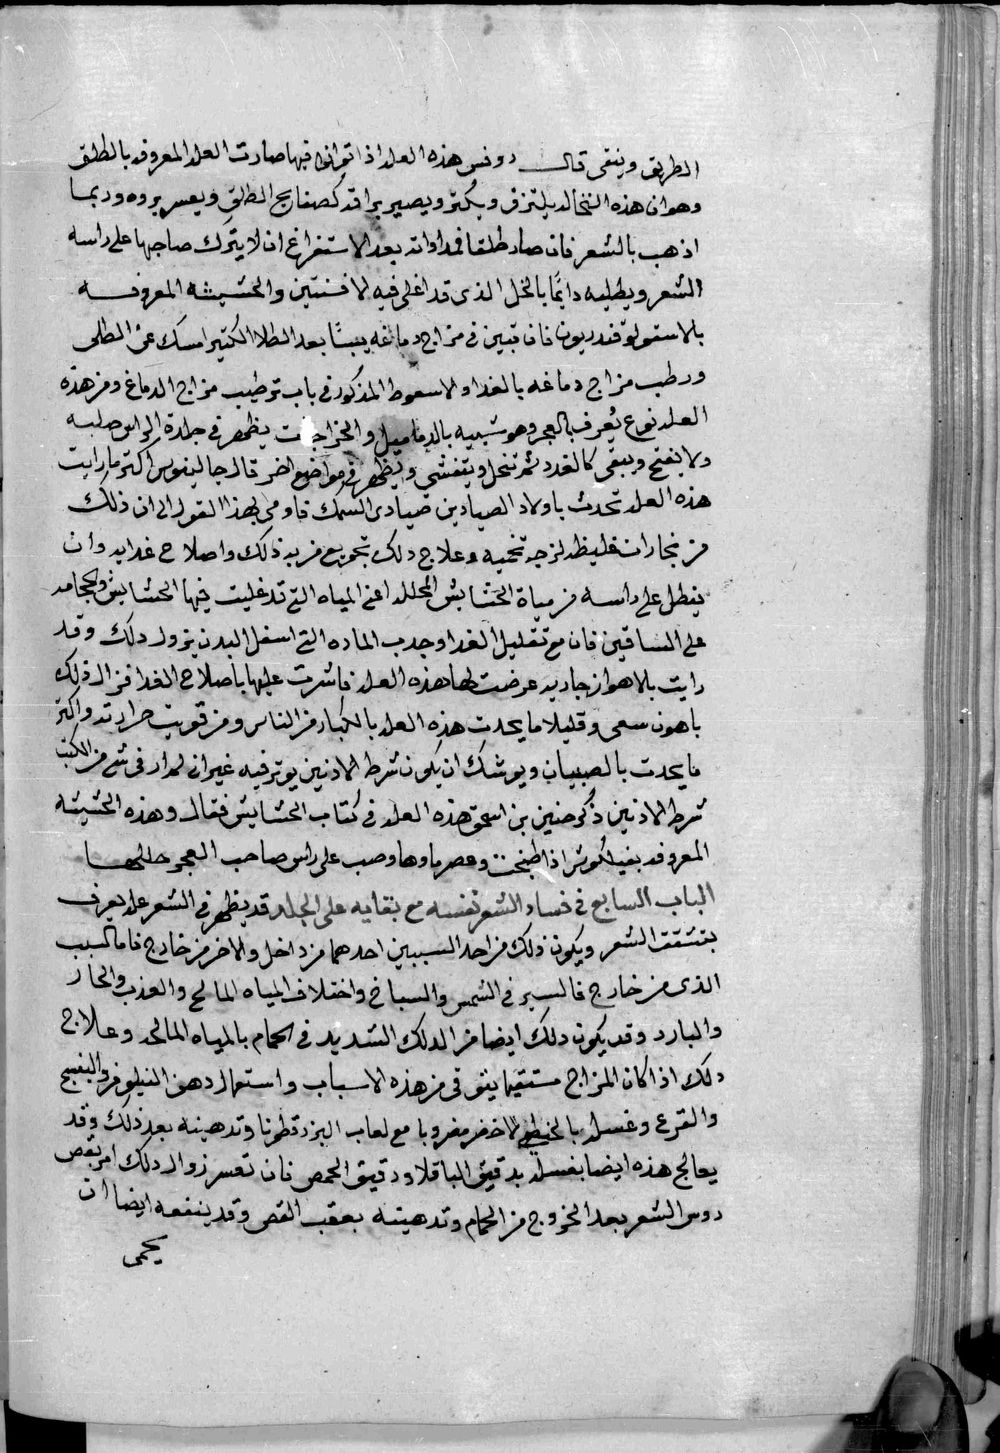 الطريق وينقى قال روفس هذه العله اذا توانوا فيها صارت العله المعروفه بالطلق
وهو ان هذه النخاله يلتزق ويكثر ويصير براقه كصفايح الطلق ويعسر بروه وربما
اذهب بالشعر فان صار طلقا فمداواته بعد الاستفراغ ان لا يترك صاحبها على راسه
الشعر ويطليه دايمًا بالخل الذى قد اغلى فيه الافسنتين والحشيشه المعروفه
بالاستولوقندريون فان تبين فى مزاج دماغه يبسًا بعد الطلا الكثير امسك عن الطلى
ورطب مزاج دماغه بالغدا والاسعوط المذكور فى باب ترطيب مزاج الدماغ ومن هذه
العله نوع يُعرف بالعجر وهو شبيه بالدماميل والخراجات يظهر فى جلدة الراس صلبه
ولا يفتح ويبقى كالغدد ثم تنحل ويتفشى ويظهر فى مواضع اخر قال جالينوس اكثر ما رايت
هذه العله تحدث باولاد الصيادين صيادى السمك فاومى بهذا القول الى ان ذلك
من بخارات غليظه لزجه تخينه وعلاج دلك بتجويع من به ذلك واصلاح غدايه وان
ينطل على راسه من مياة الحشايش المحلله اعنى المياه التى قد غليت فيها الحشايش والحجامه
على الساقين فان مع تقليل الغدا وجدب الماده التى اسفل البدن يزول دلك وقد
رايت بالاهواز جاريه عرضت لها هذه العله فاشرت عليها باصلاح الغدا فزال ذلك
باهون سعى وقليلا ما يحدت هذه العله بالكبار من الناس ومن قويت حرارته واكثر
ما يحدت بالصبيان ويوشك ان يكون شرط الاذنين يوثر فيه غير انى لم ار فى شى من الكتب
شرط الاذنين ذكر حنين بن اسحق هذه العله فى كتاب الحشايش فقال وهذه الحشيشه
المعروفه اذا طبخت وعصر ماوها وصب على راس صاحب العجر حللها
الباب السابع فى فساد الشعر نفسه مع بقايه على الجلد قد يظهر فى الشعر عله يعرف
بتشقق الشعر ويكون ذلك من احد السببين احدهما من داخل والاخر من خارج فاما السبب
الذى من خارج فالسير فى الشمس والسباخ واختلاف المياه المالح والعذب والحار
والبارد وقد يكون دلك ايضا من الدلك الشديد فى الحمام بالمياه المالحه وعلاج
دلك اذا كان المزاج مستقيما يتوقى من هذه الاسباب واستعمال دهن النيلوفر والبنفسج
والقرع وغسله بالخطمى الاخضر مضروبا مع لعاب البزرقطونا وتدهينه بعد ذلك وقد
يعالج هذه ايضا بغسله بدقيق الباقلا ودقيق الحمص فان تعسر زوال دلك امر بقص
روس الشعر بعد الخروج من الحمام وتدهينه بعقب القص وقد ينفعه ايضا ان
يحمى